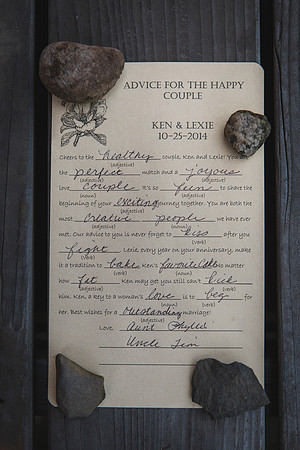 ADVICE FOR THE HAPPY
COUPLE
KEN & LEXIE
10-25-2014
Cheers to the healthy couple, Ken and Lexie! You are
(adjective)
the perfect match and a joyous
(adjective) (adjective)
love couple. It's so fun to share the
(noun) (adjective)
beginning of your exciting journey together. You are both the
(adjective)
most creative people we have ever
(adjective) (noun)
met. Our advice to you is never forget to kiss after you
(verb)
fight. Lexie, every year on your anniversary, make
(verb)
it a tradition to bake Ken's favorite Cake no matter
(verb) (noun)
how fat Ken may get you still can't kick
(adjective) (verb)
him. Ken, a key to a woman's love is to beg for
(noun) (verb)
her. Best wishes for a outstanding marriage!
(adjective)
Love, Aunt Phyllis
Uncle Jim